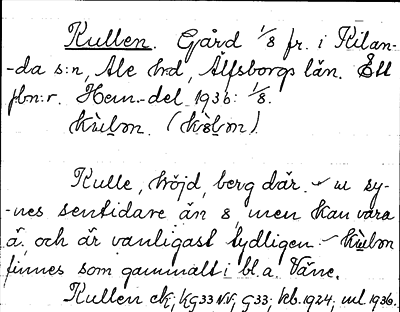 Kullen. Gård 1/8 fr. i Kilan-
-da s:n, Ale hrd, Älfsborgs län. Ett
jbn:r. Hem.-del 1936: 1/8.
kùlɔn. (kòlɔn).
Kulle, höjd, berg där. ~ u sy-
-nes sentidare än o, men kan vara
ä. och är vanligast tydligen. ~ kùlɔn
finnes som gammalt i bl.a. Väne.
Kullen ek, kg33 NV, G33, kb.1924, ml 1936.